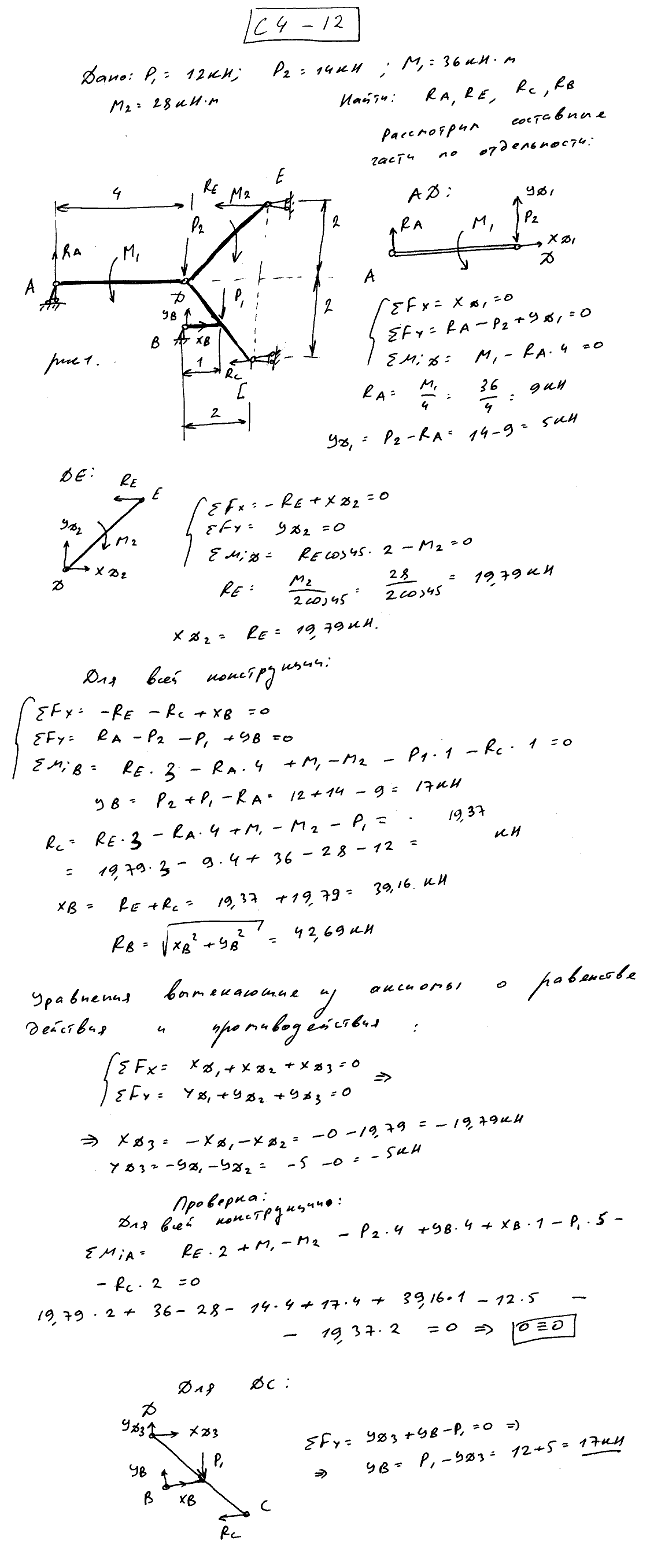 С4-12
Дано: P₁= 12кН; P₂=14кН ; M₁=36кН·м
M₂=28кН·м
Найти: RA, RE, RC, RB
Рассмотрим составные
части по отдельности:
4
RE
M₂
E
P₂
2
RA
M₁
A
D
P₁
2
YB
B
XB
1
RC
C
2
рис1.
AD:
YD₁
RA
M₁
P₂
XD₁
A
D
ΣFx= XD₁=0
ΣFy= RA-P₂+YD₁=0
ΣMiD= M₁-RA·4=0
RA= M₁/4 = 36/4 = 9кН
YD₁= P₂-RA= 14-9= 5кН
DE:
RE
E
YD₂
M₂
D
XD₂
ΣFx=-RE+XD₂=0
ΣFy= YD₂=0
ΣMiD= REcos45·2-M₂=0
RE= M₂/2cos45 = 28/2cos45 = 19,79кН
XD₂= RE= 19,79кН.
Для всей конструкции:
ΣFx= -RE-RC+XB=0
ΣFy= RA-P₂-P₁+YB=0
ΣMiB= RE·3-RA·4+M₁-M₂-P1·1-RC·1=0
YB= P₂+P₁-RA= 12+14-9= 17кН
RC= RE·3-RA·4+M₁-M₂-P₁=
= 19,79·3-9·4+36-28-12= 19,37 кН
XB= RE+RC= 19,37+19,79= 39,16 кН
RB= √XB²+YB² = 42,69кН
Уравнения вытекающие из аксиомы о равенстве
действия и противодействия :
ΣFx= XD₁+XD₂+XD₃=0
ΣFy= YD₁+YD₂+YD₃=0 ⇒
⇒ XD₃= -XD₁-XD₂= -0-19,79= -19,79кН
YD₃=-YD₁-YD₂= -5-0=-5кН
Проверка:
Для всей конструкции:
ΣMiA= RE·2+M₁-M₂-P₂·4+YB·4+XB·1-P₁·5-
-RC·2=0
19,79·2+36-28-14·4+17·4+39,16·1-12·5 -
- 19,37·2 =0 ⇒ 0≡0
Для DC:
D
YD₃
XD₃
P₁
YB
B
XB
C
RC
ΣFy= YD₃+YB-P₁=0 ⇒
⇒ YB= P₁-YD₃= 12+5=17кН